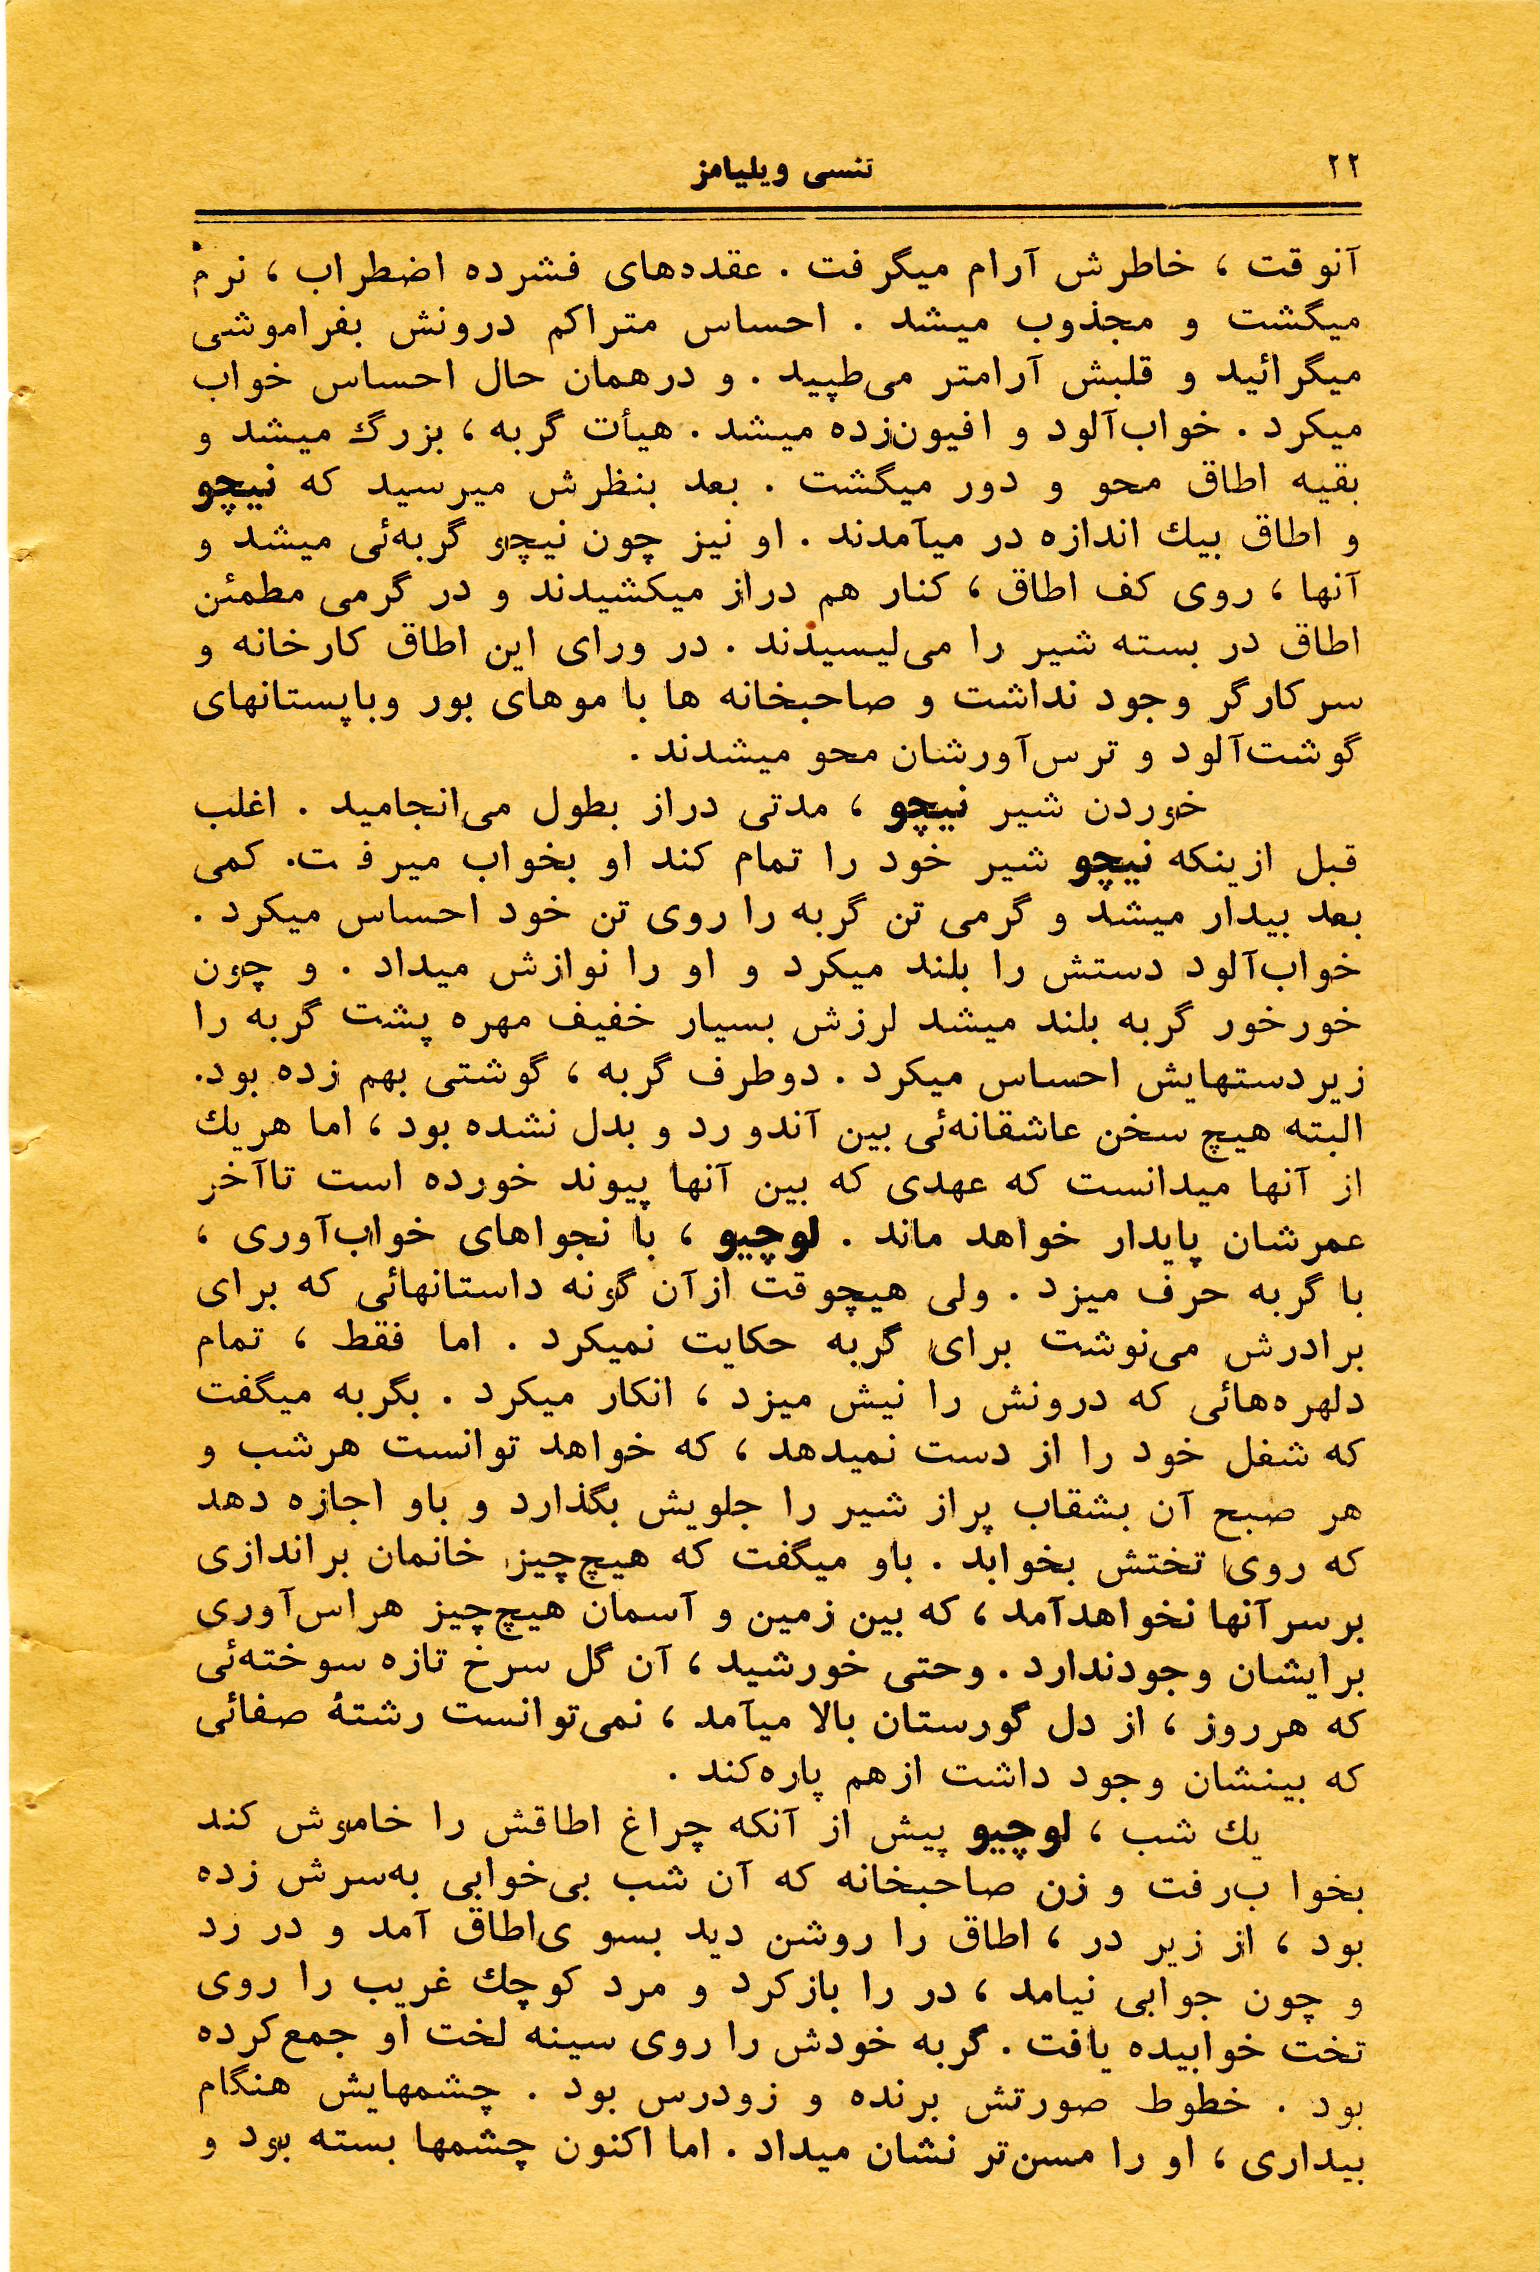 ۲۲
تنسی ویلیامز
آنوقت ، خاطرش آرام میگرفت . عقده‌های فشرده اضطراب ، نرم
میگشت و مجذوب میشد . احساس متراکم درونش بفراموشی
میگرائید و قلبش آرامتر می‌طپید . و درهمان حال احساس خواب
میکرد . خواب‌آلود و افیون‌زده میشد . هیأت گربه ، بزرگ میشد و
بقیه اطاق محو و دور میگشت . بعد بنظرش میرسید که نیچو
و اطاق بیك اندازه در میآمدند . او نیز چون نیچو گربه‌ئی میشد و
آنها ، روی کف اطاق ، کنار هم دراز میکشیدند و در گرمی مطمئن
اطاق در بسته شیر را می‌لیسیدند . در ورای این اطاق کارخانه و
سرکارگر وجود نداشت و صاحبخانه ها با موهای بور وباپستانهای
گوشت‌آلود و ترس‌آورشان محو میشدند .
خوردن شیر نیچو ، مدتی دراز بطول می‌انجامید . اغلب
قبل ازینکه نیچو شیر خود را تمام کند او بخواب میرفت. کمی
بعد بیدار میشد و گرمی تن گربه را روی تن خود احساس میکرد .
خواب‌آلود دستش را بلند میکرد و او را نوازش میداد . و چون
خورخور گربه بلند میشد لرزش بسیار خفیف مهره پشت گربه را
زیردستهایش احساس میکرد . دوطرف گربه ، گوشتی بهم زده بود.
البته هیچ سخن عاشقانه‌ئی بین آندو رد و بدل نشده بود ، اما هریك
از آنها میدانست که عهدی که بین آنها پیوند خورده است تاآخر
عمرشان پایدار خواهد ماند . لوچیو ، با نجواهای خواب‌آوری ،
با گربه حرف میزد . ولی هیچوقت ازآن گونه داستانهائی که برای
برادرش می‌نوشت برای گربه حکایت نمیکرد . اما فقط ، تمام
دلهره‌هائی که درونش را نیش میزد ، انکار میکرد . بگربه میگفت
که شغل خود را از دست نمیدهد ، که خواهد توانست هرشب و
هر صبح آن بشقاب پراز شیر را جلویش بگذارد و باو اجازه دهد
که روی تختش بخوابد . باو میگفت که هیچ‌چیز خانمان براندازی
برسرآنها نخواهدآمد ، که بین زمین و آسمان هیچ‌چیز هراس‌آوری
برایشان وجودندارد . وحتی خورشید ، آن گل سرخ تازه سوخته‌ئی
که هرروز ، از دل گورستان بالا میآمد ، نمی‌توانست رشتهٔ صفائی
که بینشان وجود داشت ازهم پاره‌کند .
یك شب ، لوچیو پیش از آنکه چراغ اطاقش را خاموش کند
بخوا ب‌رفت و زن صاحبخانه که آن شب بی‌خوابی به‌سرش زده
بود ، از زیر در ، اطاق را روشن دید بسو ی‌اطاق آمد و در زد
و چون جوابی نیامد ، در را بازکرد و مرد کوچك غریب را روی
تخت خوابیده یافت . گربه خودش را روی سینه لخت او جمع‌کرده
بود . خطوط صورتش برنده و زودرس بود . چشمهایش هنگام
بیداری ، او را مسن‌تر نشان میداد . اما اکنون چشمها بسته بود و